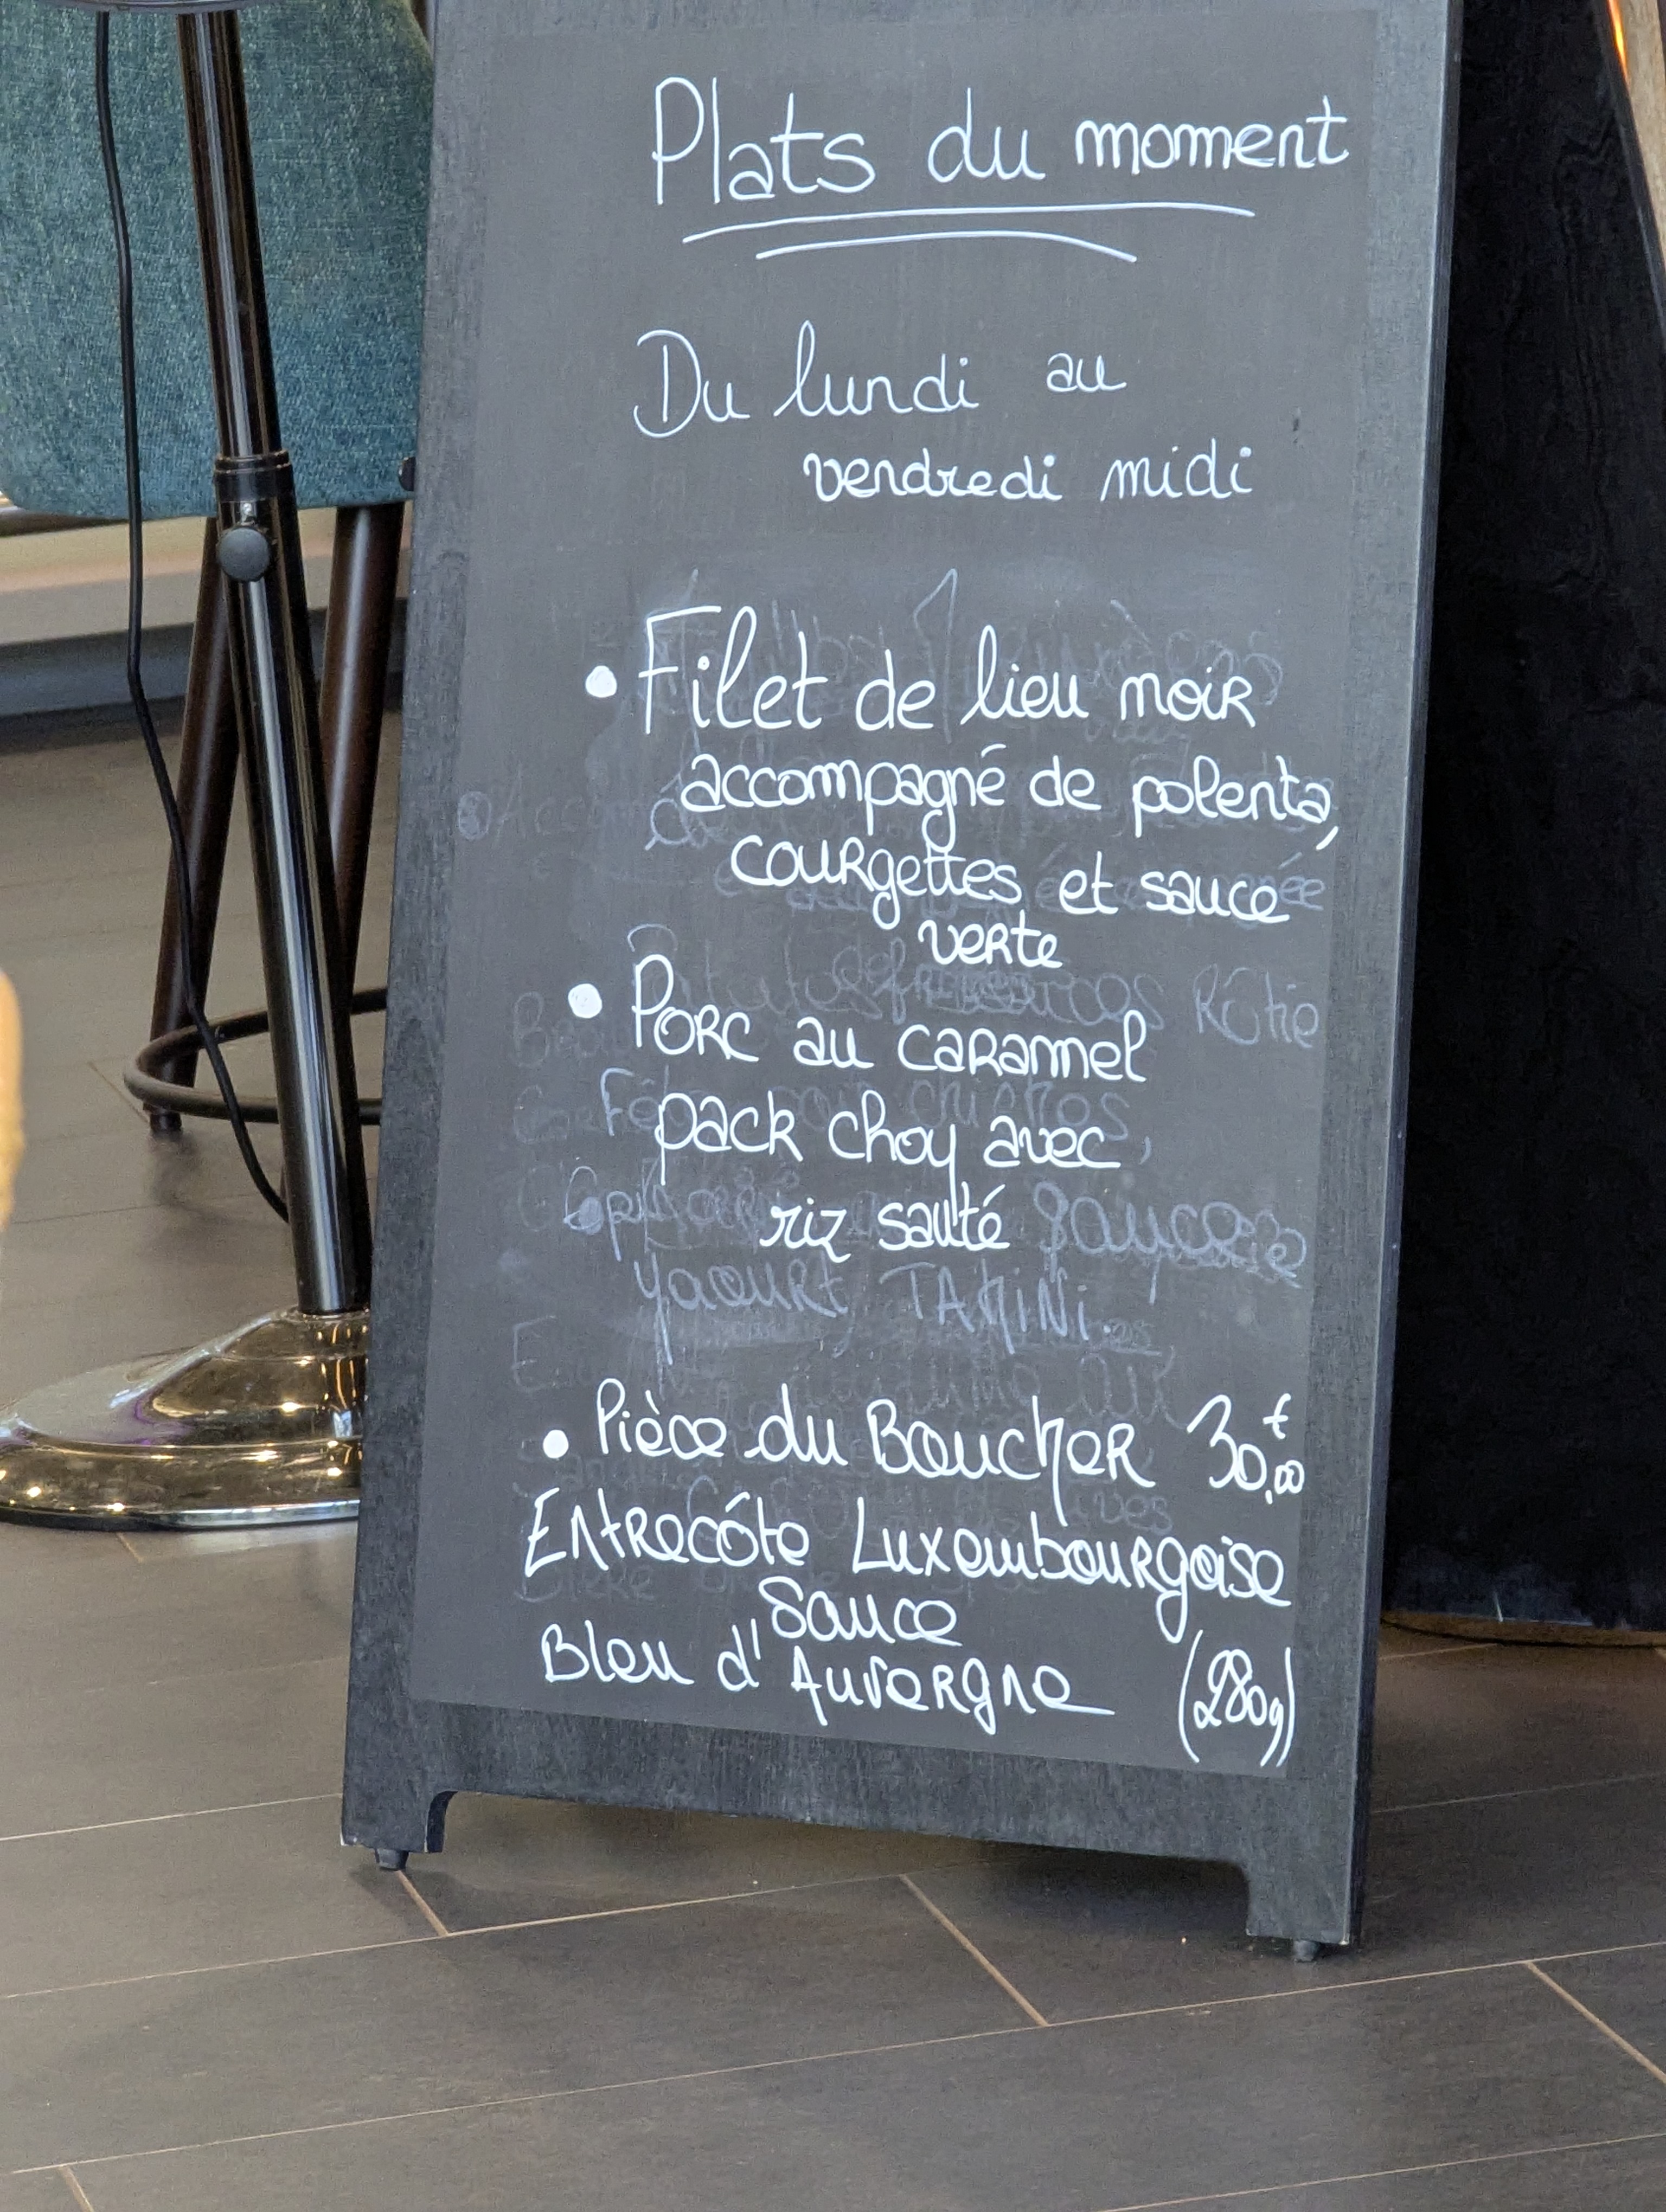 Plats du moment
Du lundi au
vendredi midi
• Filet de lieu noir
accompagné de polenta,
courgettes et sauce
verte
• Porc au caramel
pack choy avec
riz sauté
yaourt TAHINi.
• Pièce du Boucher 30,00€
Entrecôte Luxembourgoise
Sauce
Bleu d'Auvergne (280g)